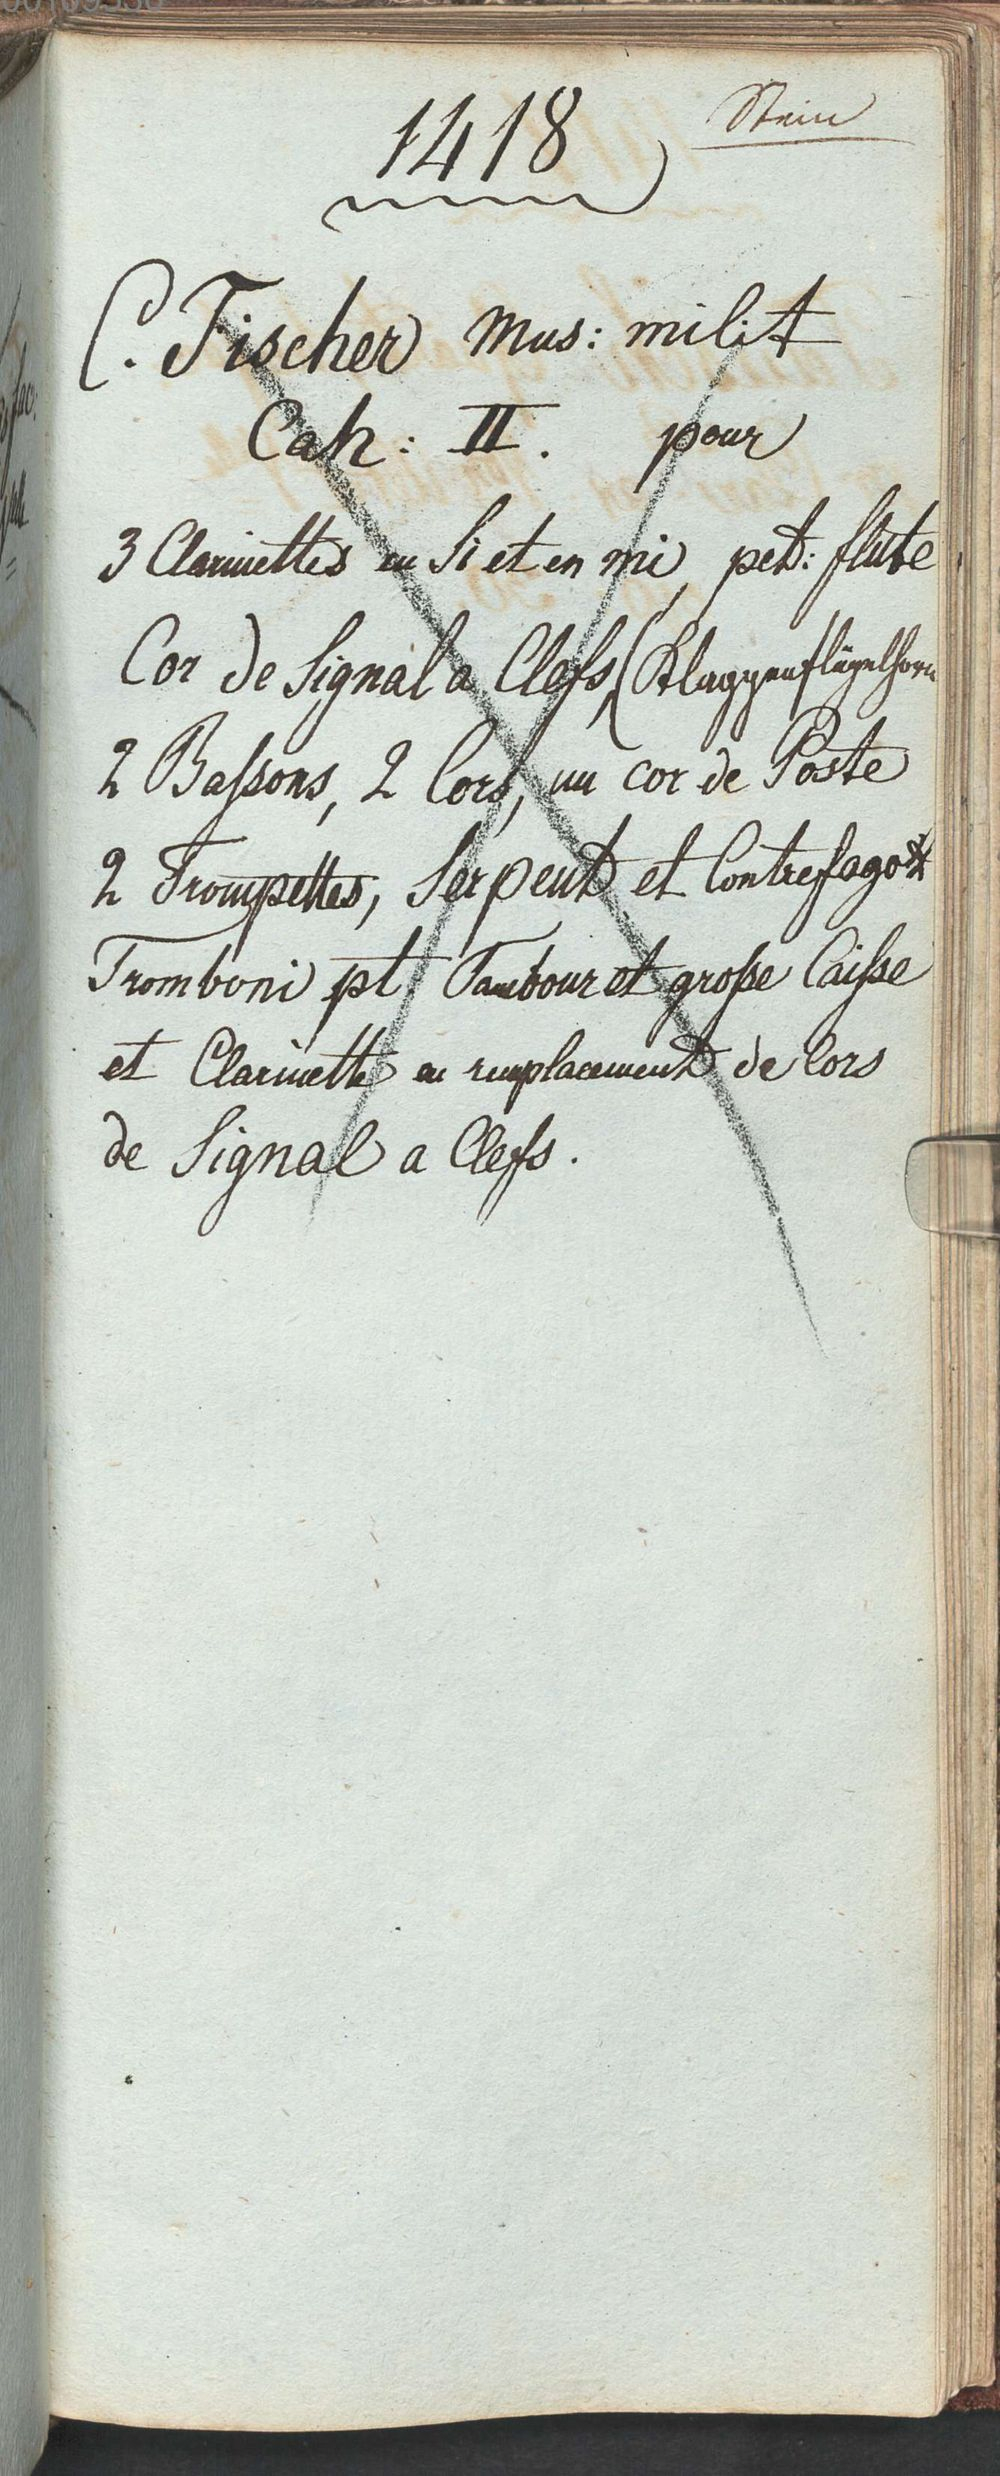 1418
Stein
C. Fischer Mus: milit
Cah: II. pour
3 Clarinettes en Si et en mi, pet: flute
Cor de Signal a Clefs, (Klappenflügelhorn
2 Baſsons, 2 Cors, un cor de Poste
2 Trompettes, Serpent et Contrefagott
Tromboni pt Tambour et groſse Caiſse
et Clarinette en remplacement de Cors
de Signal a Clefs.